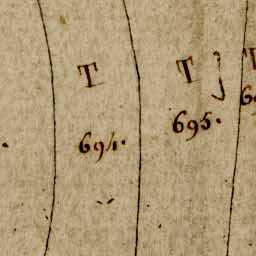 T
694.
T
695.